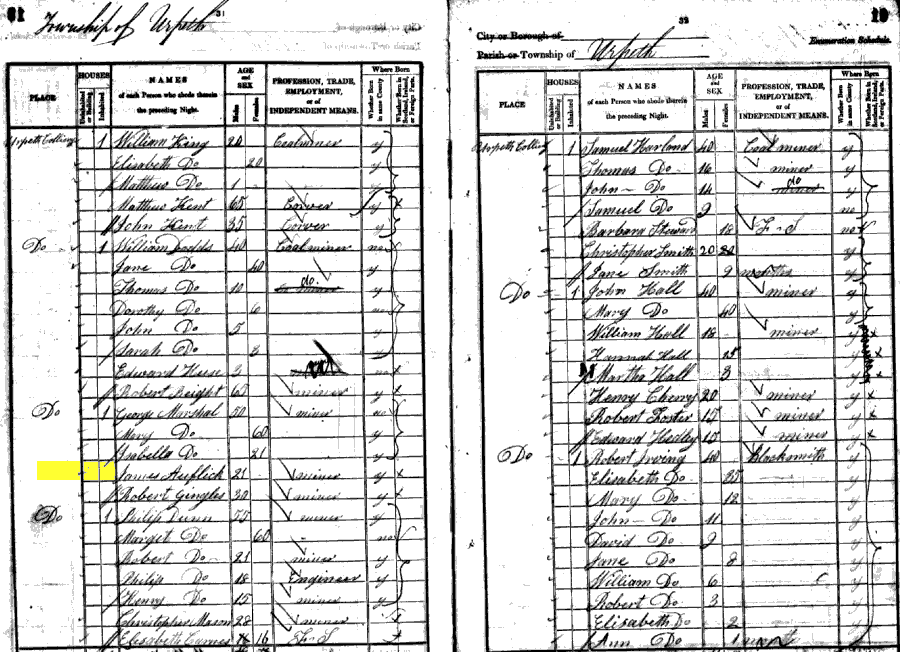 61
Township of Urpeth
31
PLACE
HOUSES
Uninhabited or Building
Inhabited
NAMES
of each Person who abode therein the preceding Night.
AGE and SEX
Males
Females
PROFESSION, TRADE, EMPLOYMENT, or of INDEPENDENT MEANS.
Where Born
Whether Born in same County
Whether Born in Scotland, Ireland, or Foreign Parts.
1 William King 20 Coalminer y
Elisabeth Do 20 y
Matthew Do 1 y
Matthew Hent 65 y
John Hent 35 y
Do 1 William Dodds 40 Coalminer no
Jane Do 40 y
Thomas Do 10 do. y
Dorothy Do 6
John Do 5 y
Sarah Do
Edward
Robert 65 miner y
Do 1 George Marshal 50 miner no
Mary Do 60 y
Isabella Do 21 y
James 21 miner y
Robert Gingles 30 miner y
Do 1 Philip Dunn 75 miner y
Margit Do 60 no
Robert Do 21 miner y
Philip Do 18 Engineer y
Henry Do 15 miner y
Christopher Mason 28 miner
Elisabeth 16 F. S
32
19
City or Borough of
Parish or Township of Urpeth
Enumeration Schedule.
PLACE
HOUSES
Uninhabited or Building
Inhabited
NAMES
of each Person who abode therein the preceding Night.
AGE and SEX
Males
Females
PROFESSION, TRADE, EMPLOYMENT, or of INDEPENDENT MEANS.
Where Born
Whether Born in same County
Whether Born in Scotland, Ireland, or Foreign Parts.
Urpeth Colliery 1 Samuel Harland 40 Coal miner y
Thomas Do 16 miner y
John Do 14 do y
Samuel Do 9 no
Barbara 18 F. S no
Christopher Smith 20 y
Jane Smith 9 months y
Do 1 John Hall 40 miner y
Mary Do 40 y
William Hall 18 miner y
Hannah Hall 15 y
Martha Hall 3 y
Henry Cherry 20 miner y
Robert Foster 15 miner y
Edward Hedley 15 miner y
Do 1 Robert Irving 40 Blacksmith y
Elisabeth Do 35 y
Mary Do 12 y
John Do 11 y
David Do 9 y
Jane Do 8 y
William Do 6 y
Robert Do 3 y
Elisabeth Do 2 y
Ann Do 1 y